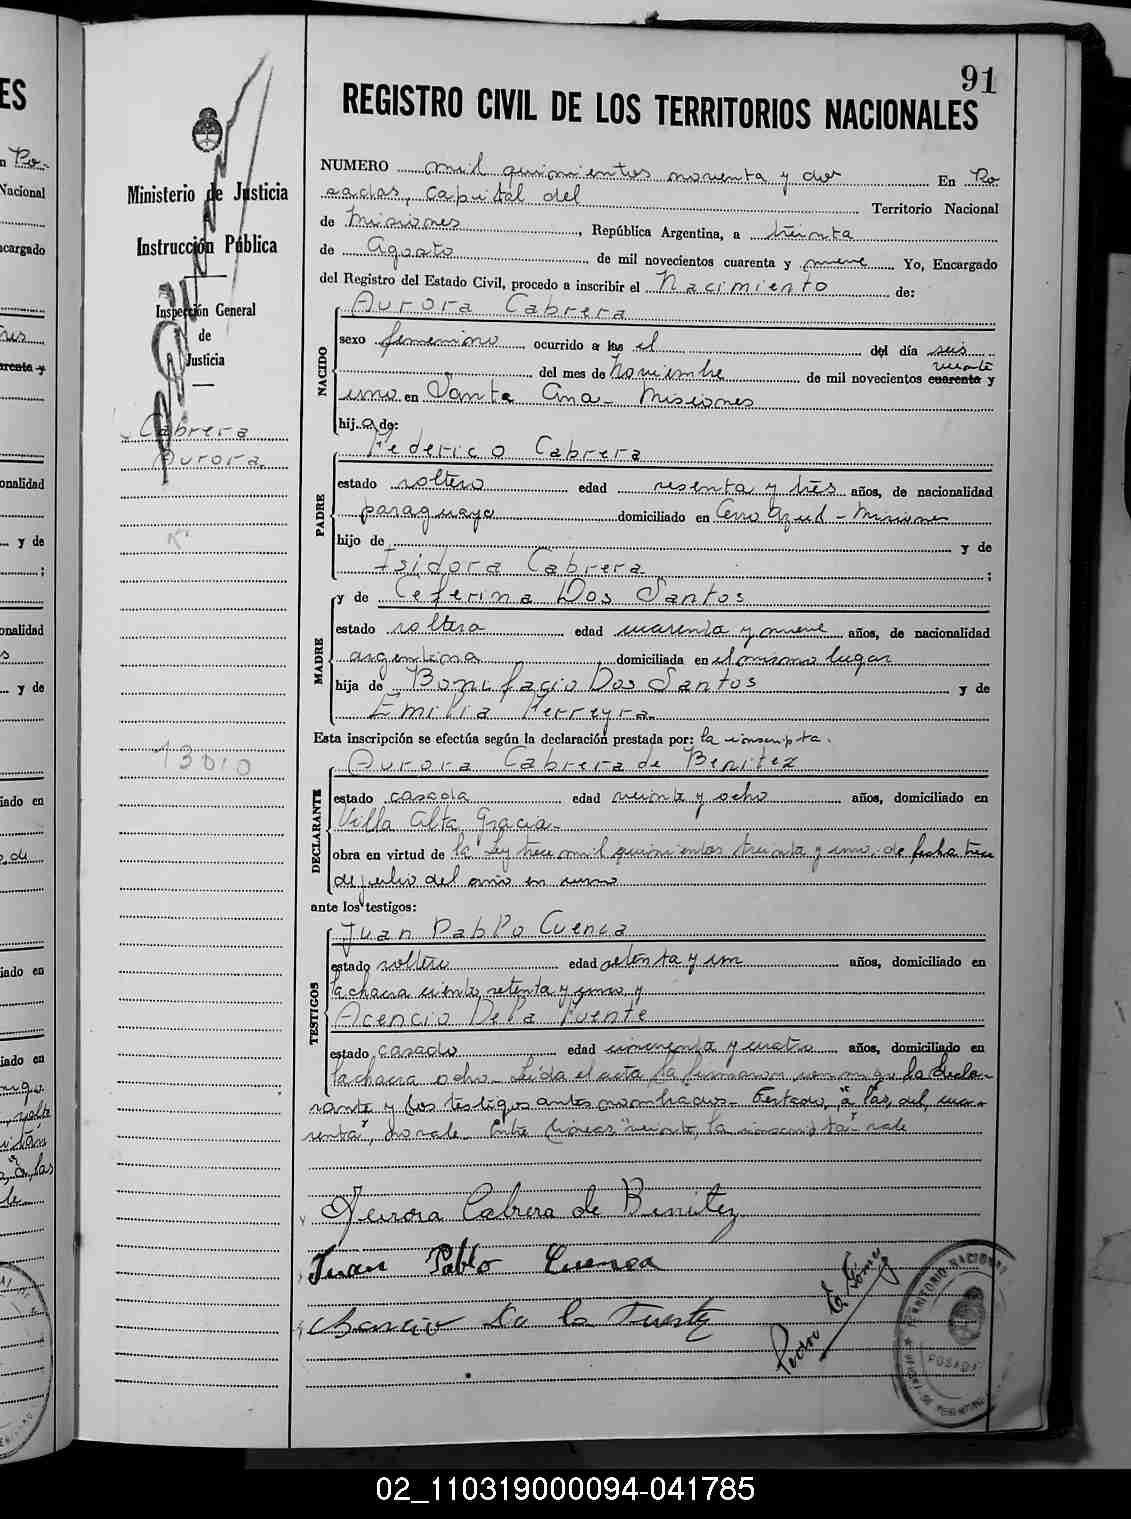 91
REGISTRO CIVIL DE LOS TERRITORIOS NACIONALES
Ministerio de Justicia
Instrucción Pública
Inspección General
de
Justicia
Cabrera
Aurora
13010
NUMERO mil quinientos noventa y dos En Po
sadas, capital del Territorio Nacional
de Misiones, República Argentina, a treinta
de Agosto de mil novecientos cuarenta y nueve Yo, Encargado
del Registro del Estado Civil, procedo a inscribir el Nacimiento de:
NACIDO
Aurora Cabrera
sexo femenino ocurrido a las el del día seis
veinte
del mes de Noviembre de mil novecientos cuarenta y
uno en Santa Ana - Misiones
hija de:
PADRE
Federico Cabrera
estado soltero edad sesenta y tres años, de nacionalidad
paraguaya domiciliado en Cerro Azul - Misiones
hijo de y de
Isidora Cabrera ;
MADRE
y de Ceferina Dos Santos
estado soltera edad cuarenta y nueve años, de nacionalidad
argentina domiciliada en el mismo lugar
hija de Bonifacio Dos Santos y de
Emilia Ferreyra
Esta inscripción se efectúa según la declaración prestada por: la inscripta.
DECLARANTE
Aurora Cabrera de Benitez
estado casada edad veinte y ocho años, domiciliado en
Villa Alta Gracia
obra en virtud de la Ley trece mil quinientos treinta y uno, de fecha trece
de julio del año en curso
ante los testigos:
TESTIGOS
Juan Pablo Cuenca
estado soltero edad setenta y un años, domiciliado en
la chacra ciento setenta y uno y
Acencio De la Fuente
estado casado edad cincuenta y cuatro años, domiciliado en
la chacra ocho - Leida el acta la firmaron conmigo la decla-
rante y los testigos antes nombrados - Testado, "a las, del, cua-
renta", no vale - Entre líneas "veinte, la inscripta" vale
Aurora Cabrera de Benitez
Juan Pablo Cuenca
Asencio De la Fuente
Pedro E. Gómez
TERRITORIO NACIONAL
POSADAS
02_110319000094-041785